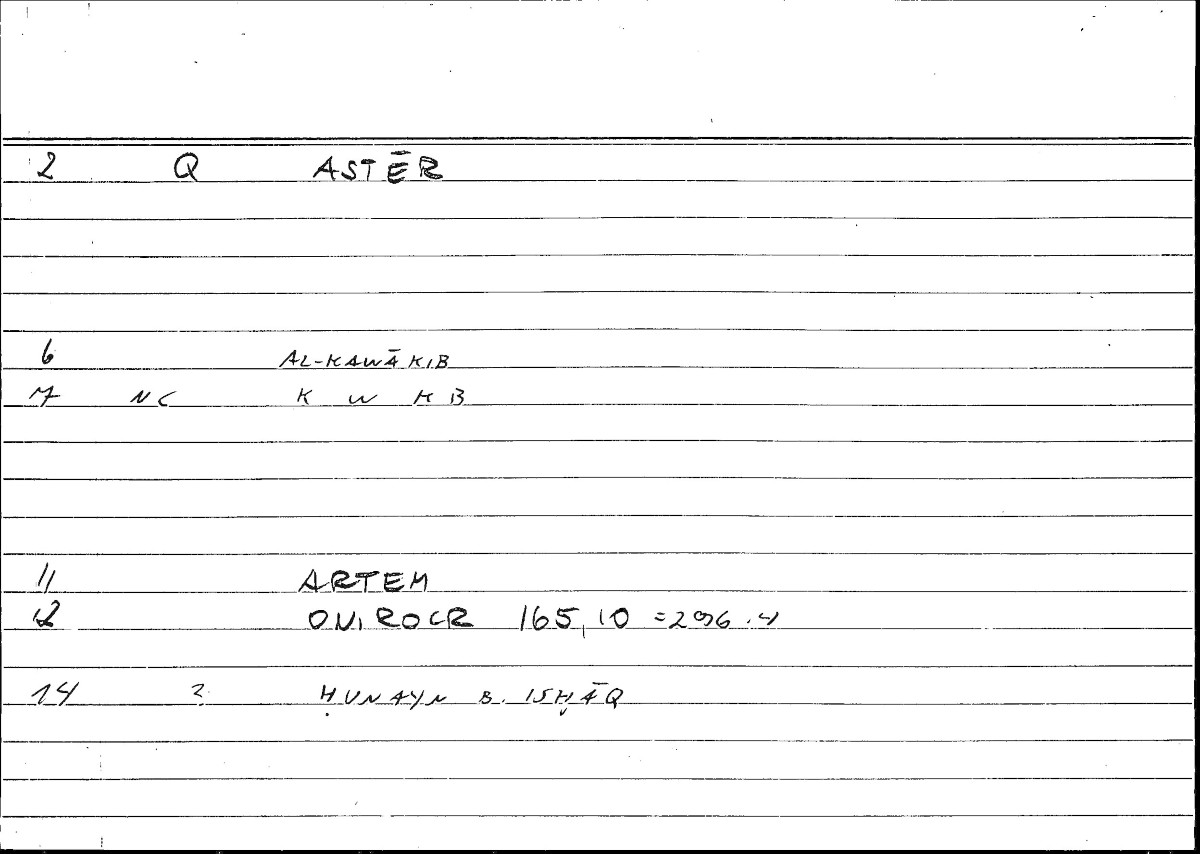 2 Q ASTĒR
6 AL-KAWĀKIB
7 NC K W K B
11 ARTEM
12 ONIROCR 165,10 = 296.4
14 2 ḤUNAYN B. ISḤĀQ